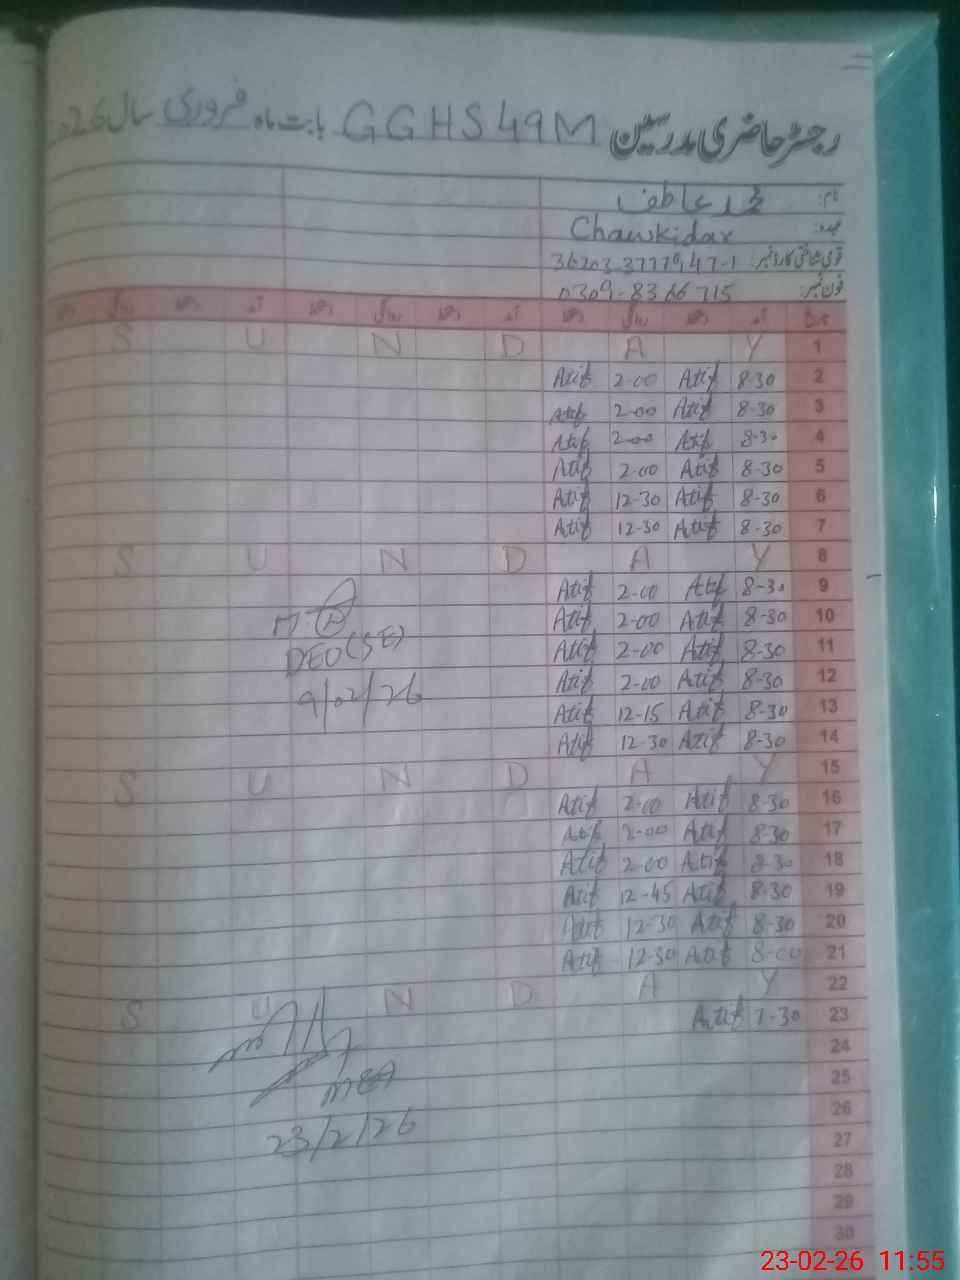 رجسٹر حاضری مدرسین GGHS 49M بابت ماہ فروری سال 26
نام: محمد عاطف
عہدہ: Chawkidar
قومی شناختی کارڈ نمبر: 36203-3777947-1
فون نمبر: 0309-8366715
تاریخ آمد دستخط روانگی دستخط آمد دستخط روانگی دستخط
S U N D A Y 1
Atif 2-00 Atif 8-30 2
Atif 2-00 Atif 8-30 3
Atif 2-00 Atif 8-30 4
Atif 2-00 Atif 8-30 5
Atif 12-30 Atif 8-30 6
Atif 12-30 Atif 8-30 7
S U N D A Y 8
Atif 2-00 Atif 8-30 9
Atif 2-00 Atif 8-30 10
Atif 2-00 Atif 8-30 11
DEO(SE)
Atif 2-00 Atif 8-30 12
9/02/26
Atif 12-15 Atif 8-30 13
Atif 12-30 Atif 8-30 14
S U N D A Y 15
Atif 2-00 Atif 8-30 16
Atif 2-00 Atif 8-30 17
Atif 2-00 Atif 8-30 18
Atif 12-45 Atif 8-30 19
Atif 12-30 Atif 8-30 20
Atif 12-30 Atif 8-00 21
S U N D A Y 22
Atif 7-30 23
24
MEA 25
26
23/2/26 27
28
29
30
23-02-26 11:55